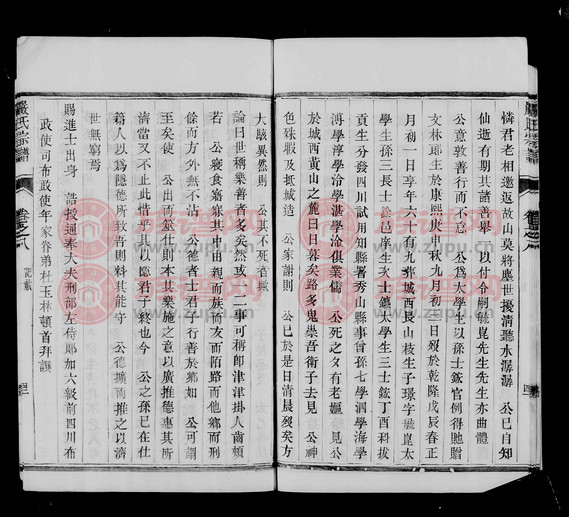 憐君老相邀返故山莫將塵世擾清聽水潺潺　公已自知
仙逝有期其諸善舉　以付令嗣毓崑先生先生亦曲體
公意敦善行而不怠　公為太學生以孫士鋐官例得貤贈
文林郎生於康熙庚申秋九月初二日歿於乾隆戊辰春正
月初一日享年六十有九葬城西長山枝生子璟字毓崑太
學生孫三長士 邑庠生次士鑣太學生三士鋐丁酉科拔
貢生分發四川試用知縣署秀山縣事曾孫七學泗學海學
溥學淳學泠學湛學淪俱業儒　公死之夕有老嫗 見公
於城西黃山之麓曰日暮矣路多鬼祟吾衛子去見　公神
色殊暇及抵城造　公家謝則　公已於是日清晨歿矣方
大駭異然則　公其不死者歟
論曰世稱樂善者多矣然或一二事可稱即津津掛人齒頰
若　公寢食寤寐其中由親而族而友而陌路而他鄉而刑
餘而方外無不沾　公德者士君子行善於鄉如　公可謂
至矣使　公出而筮仕則本其樂施之意以廣推德惠其所
濟當又不止此惜乎其以隱君子終也今　公之孫已在仕
籍人以為隱德所致者則料其能守　公德擴而推之以濟
世無窮焉
賜進士出身　誥授通奉大夫刑部左侍郎加六級前四川布
政使司布政使年家眷弟杜玉林頓首拜譔
嚴氏宗譜
卷之八
記載